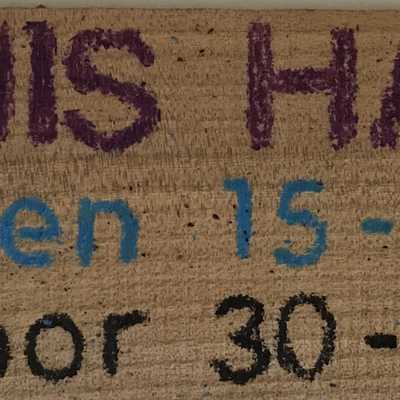 IIS HA
en 15-
oor 30-